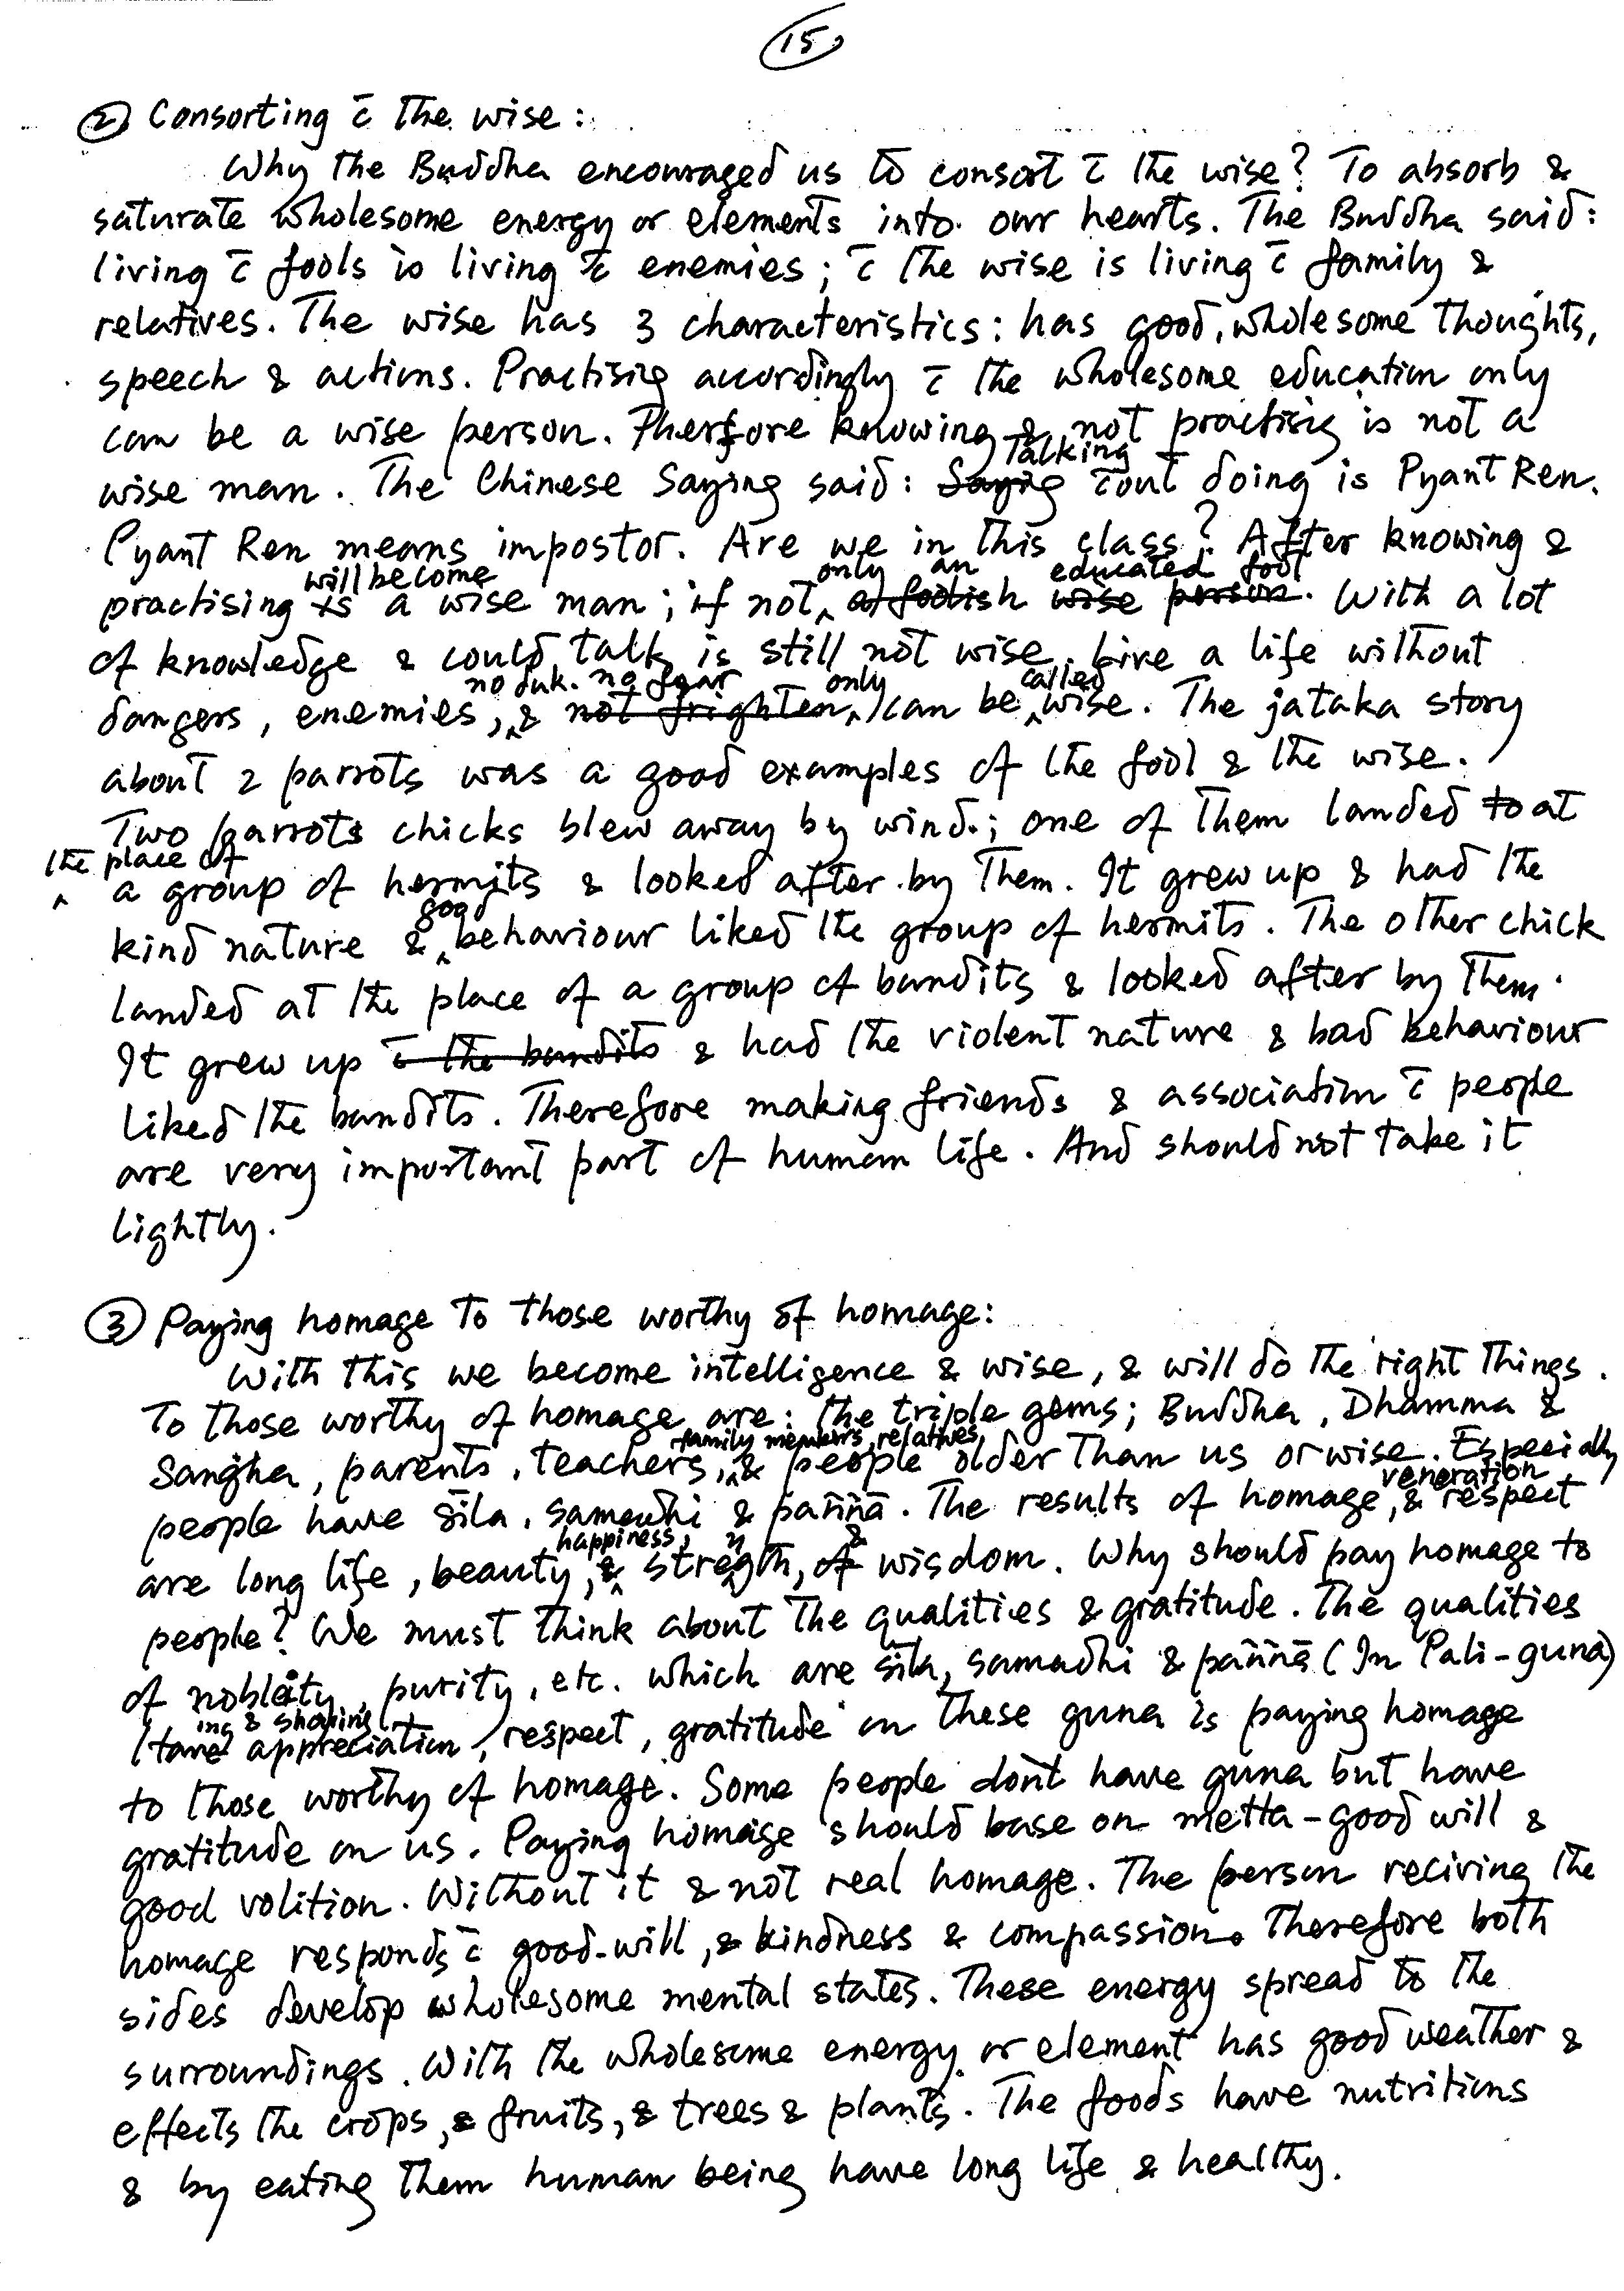 15
② Consorting c̄ the wise :
Why the Buddha encouraged us to consort c̄ the wise? To absorb &
saturate wholesome energy or elements into our hearts. The Buddha said:
living c̄ fools is living c̄ enemies; c̄ the wise is living c̄ family &
relatives. The wise has 3 characteristics: has good, wholesome thoughts,
speech & actions. Practising accordingly c̄ the wholesome education only
can be a wise person. Therefore knowing & not practising is not a
wise man. The Chinese Saying said: Talking c̄out doing is Pyant Ren.
Pyant Ren means impostor. Are we in this class? After knowing &
practising will become a wise man; if not only an educated fool. With a lot
of knowledge & could talk is still not wise. Live a life without
dangers, enemies, no duk. no fear & only can be called wise. The jataka story
about 2 parrots was a good examples of the fool & the wise.
Two parrots chicks blew away by wind.; one of them landed at
the place of a group of hermits & looked after by them. It grew up & had the
kind nature & good behaviour liked the group of hermits. The other chick
landed at the place of a group of bandits & looked after by them.
It grew up & had the violent nature & bad behaviour
liked the bandits. Therefore making friends & association c̄ people
are very important part of human life. And should not take it
lightly.
③ Paying homage to those worthy of homage:
With this we become intelligence & wise, & will do the right things.
To those worthy of homage are: the triple gems; Buddha, Dhamma &
Sangha, parents, teachers, family members, relatives, & people older than us or wise. Especially
people have sīla, samadhi & paññā. The results of homage, veneration & respect
are long life, beauty, happiness, strength, & wisdom. Why should pay homage to
people? We must think about the qualities & gratitude. The qualities
of nobleity, purity, etc. which are sīla, samadhi & paññā (In Pali-guna)
Having & showing appreciation, respect, gratitude on these guna is paying homage
to those worthy of homage. Some people don't have guna but have
gratitude on us. Paying homage should base on metta-good will &
good volition. Without it & not real homage. The person reciving the
homage responds c̄ good-will, & kindness & compassion. Therefore both
sides develop wholesome mental states. These energy spread to the
surroundings. With the wholesome energy or element has good weather &
effects the crops, & fruits, & trees & plants. The foods have nutritions
& by eating them human being have long life & healthy.